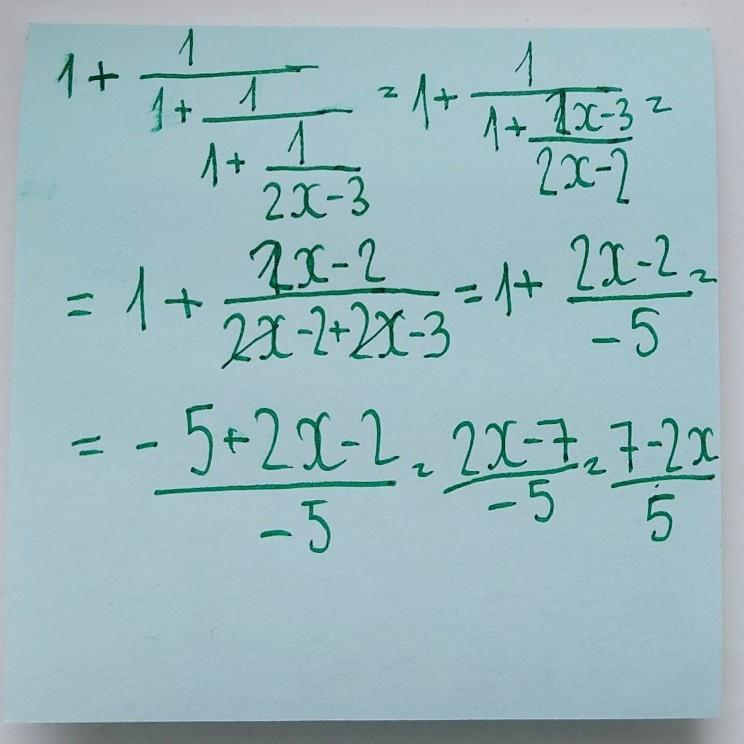 1 + 1/(1 + 1/(1 + 1/(2x-3))) = 1 + 1/(1 + (2x-3)/(2x-2)) =
= 1 + (2x-2)/(2x-2+2x-3) = 1 + (2x-2)/(-5) =
= (-5+2x-2)/(-5) = (2x-7)/(-5) = (7-2x)/5